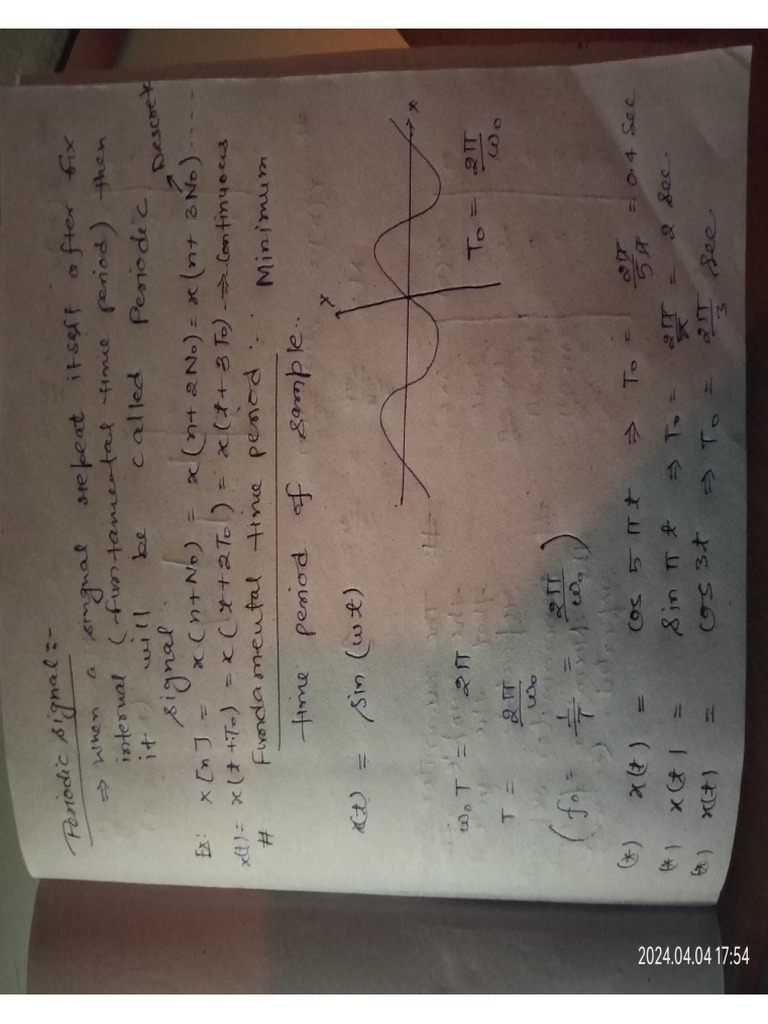 Periodic Signal:-
⇒ When a singnal repeat itself after fix
interval (funtamental time period) then
it will be called Periodic
Signal.
Descrete
Ex: x[n] = x(n+N₀) = x(n+2N₀) = x(n+3N₀) ....
x(t) = x(t+T₀) = x(t+2T₀) = x(t+3T₀) → Continuous
# Fundamental time period : Minimum
time period of sample.
x(t) = sin(ωt)
x
x
ω₀T = 2π
T = 2π/ω₀
T₀ = 2π/ω₀
(f₀ = 1/T = 2π/ω₀)
(*) x(t) = cos 5πt ⇒ T₀ = 2π/5π = 0.4 sec
(*) x(t) = sin πt ⇒ T₀ = 2π/π = 2 sec.
(*) x(t) = cos 3t ⇒ T₀ = 2π/3 sec.
2024.04.04 17:54